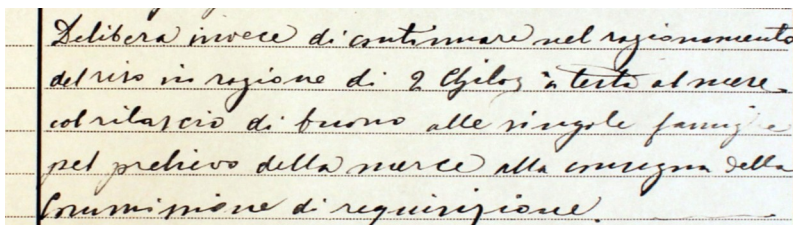 Delibera invece di continuare nel razionamento
del riso in ragione di 2 Chilog a testa al mese
col rilascio di buono alle singole famiglie
pel prelievo della merce alla consegna della
Commissione di requisizione.